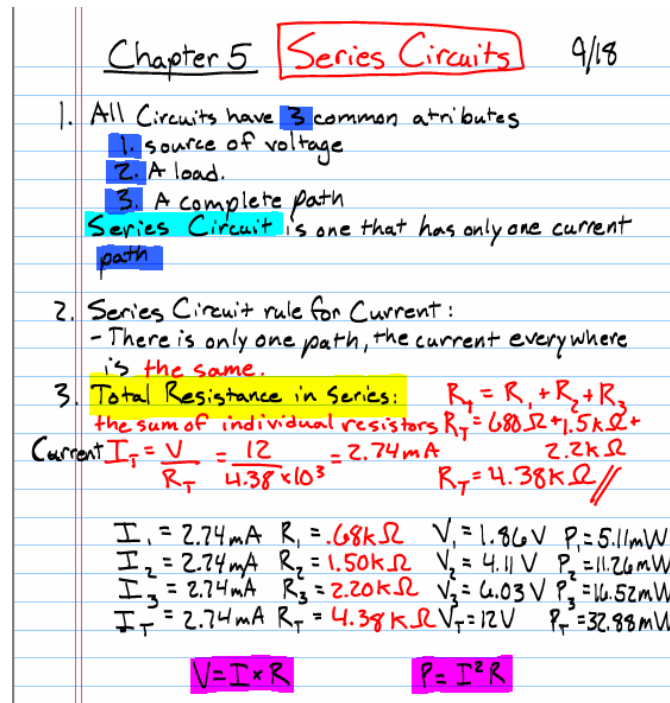 Chapter 5 Series Circuits 9/18
1. All Circuits have 3 common atributes
1. source of voltage
2. A load.
3. A complete path
Series Circuit is one that has only one current
path
2. Series Circuit rule for Current:
- There is only one path, the current everywhere
is the same.
3. Total Resistance in Series: R_T = R_1 + R_2 + R_3
the sum of individual resistors R_T = 680 Ω + 1.5k Ω +
Current I_T = V / R_T = 12 / 4.38 x 10^3 = 2.74 mA 2.2k Ω
R_T = 4.38K Ω //
I_1 = 2.74mA R_1 = .68k Ω V_1 = 1.86 V P_1 = 5.11mW
I_2 = 2.74mA R_2 = 1.50K Ω V_2 = 4.11 V P_2 = 11.26mW
I_3 = 2.74mA R_3 = 2.20K Ω V_3 = 6.03 V P_3 = 16.52mW
I_T = 2.74mA R_T = 4.38 K Ω V_T = 12V P_T = 32.88mW
V = I x R P = I^2 R